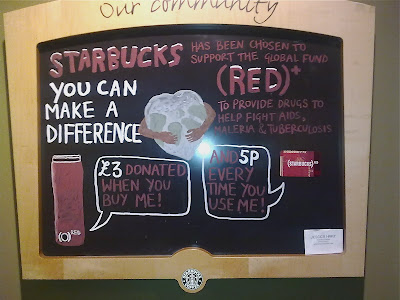 Our community
STARBUCKS
HAS BEEN CHOSEN TO
SUPPORT THE GLOBAL FUND
(RED)+
TO PROVIDE DRUGS TO
HELP FIGHT AIDS,
MALERIA & TUBERCULOSIS
YOU CAN
MAKE A
DIFFERENCE
£3 DONATED
WHEN YOU
BUY ME!
AND 5P
EVERY
TIME YOU
USE ME!
(STARBUCKS)